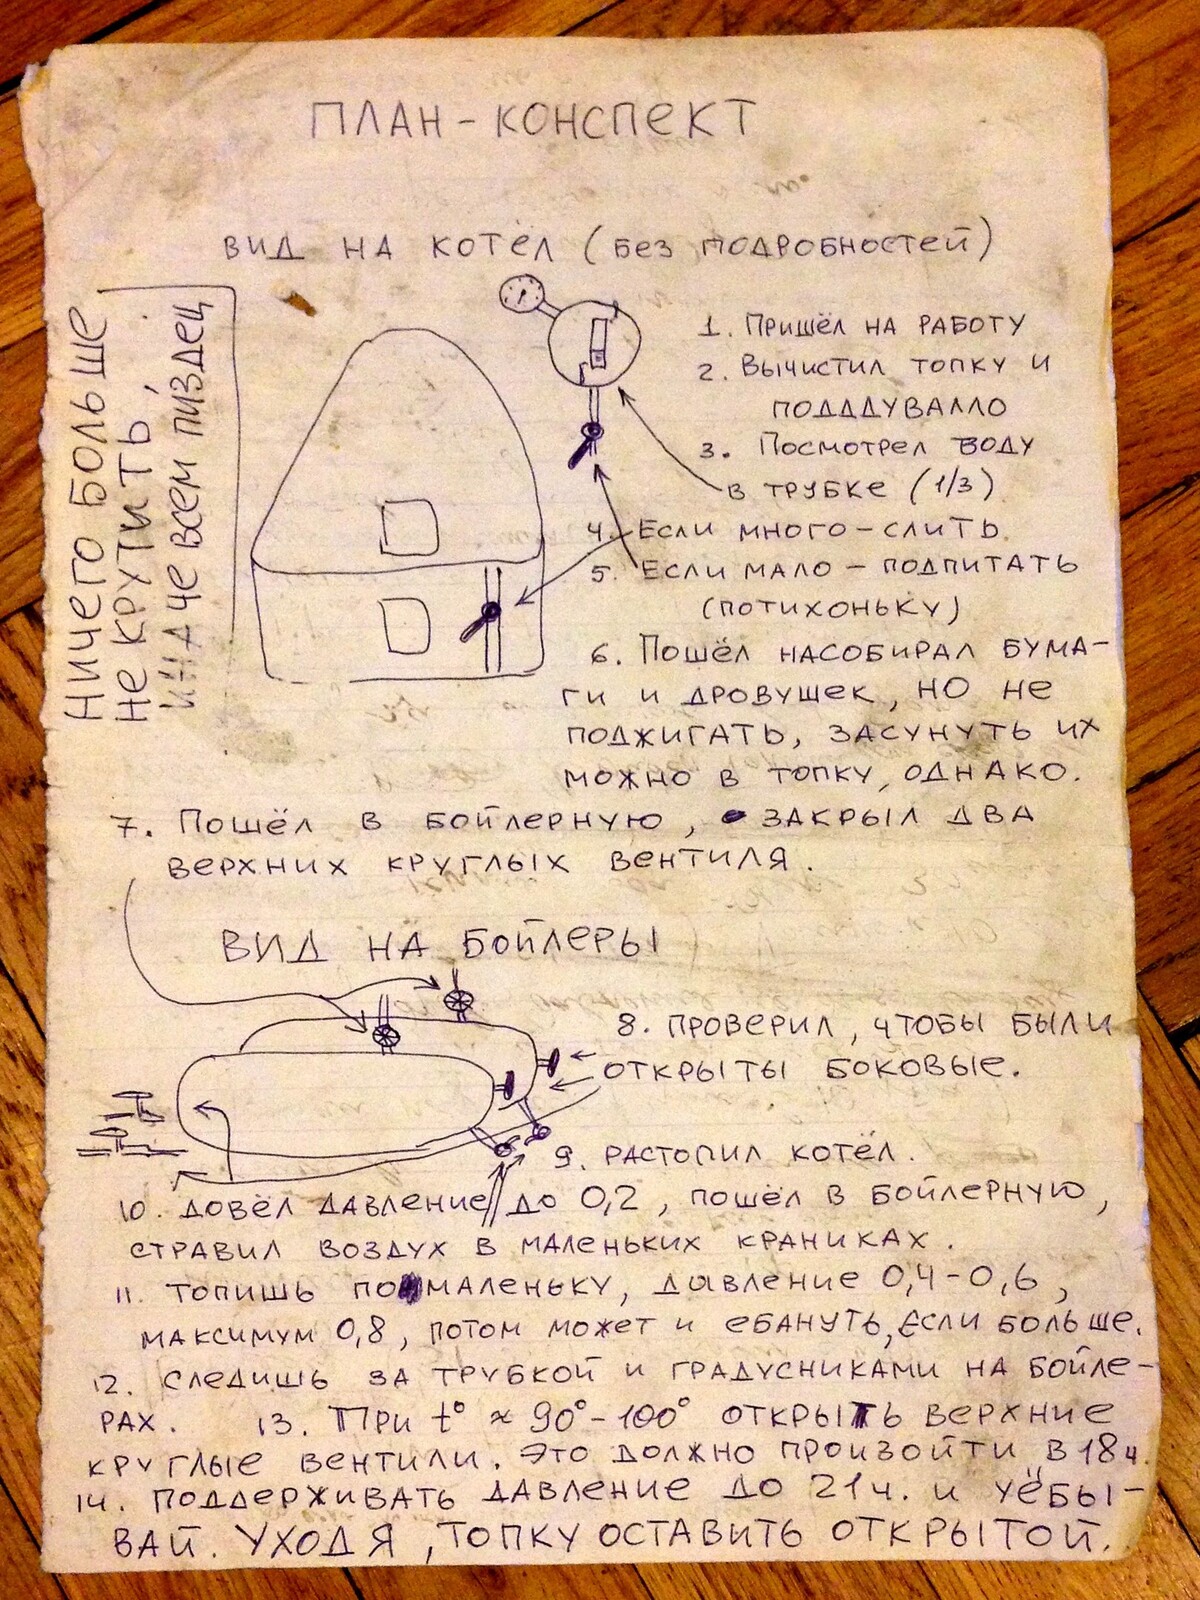 ПЛАН-КОНСПЕКТ
ВИД НА КОТЁЛ (БЕЗ ПОДРОБНОСТЕЙ)
НИЧЕГО БОЛЬШЕ
НЕ КРУТИТЬ,
ИНАЧЕ ВСЕМ ПИЗДЕЦ
1. ПРИШЁЛ НА РАБОТУ
2. ВЫЧИСТИЛ ТОПКУ И
ПОДДДУВАЛЛО
3. ПОСМОТРЕЛ ВОДУ
В ТРУБКЕ (1/3)
4. ЕСЛИ МНОГО-СЛИТЬ.
5. ЕСЛИ МАЛО - ПОДПИТАТЬ
(ПОТИХОНЬКУ)
6. ПОШЁЛ НАСОБИРАЛ БУМА-
ГИ И ДРОВУШЕК, НО НЕ
ПОДЖИГАТЬ, ЗАСУНУТЬ ИХ
МОЖНО В ТОПКУ, ОДНАКО.
7. ПОШЁЛ В БОЙЛЕРНУЮ, ЗАКРЫЛ ДВА
ВЕРХНИХ КРУГЛЫХ ВЕНТИЛЯ.
ВИД НА БОЙЛЕРЫ
8. ПРОВЕРИЛ, ЧТОБЫ БЫЛИ
ОТКРЫТЫ БОКОВЫЕ.
9. РАСТОПИЛ КОТЁЛ.
10. ДОВЁЛ ДАВЛЕНИЕ ДО 0,2, ПОШЁЛ В БОЙЛЕРНУЮ,
СТРАВИЛ ВОЗДУХ В МАЛЕНЬКИХ КРАНИКАХ.
11. ТОПИШЬ ПОМАЛЕНЬКУ, ДАВЛЕНИЕ 0,4-0,6,
МАКСИМУМ 0,8, ПОТОМ МОЖЕТ И ЕБАНУТЬ, ЕСЛИ БОЛЬШЕ.
12. СЛЕДИШЬ ЗА ТРУБКОЙ И ГРАДУСНИКАМИ НА БОЙЛЕ-
РАХ. 13. ПРИ t° ≈ 90°-100° ОТКРЫТЬ ВЕРХНИЕ
КРУГЛЫЕ ВЕНТИЛИ. ЭТО ДОЛЖНО ПРОИЗОЙТИ В 18ч.
14. ПОДДЕРЖИВАТЬ ДАВЛЕНИЕ ДО 21ч. И УЁБЫ-
ВАЙ. УХОДЯ, ТОПКУ ОСТАВИТЬ ОТКРЫТОЙ.